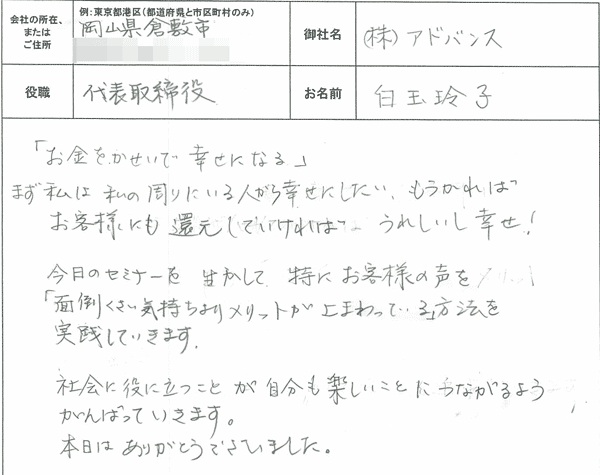 会社の所在、
または
ご住所
例：東京都港区（都道府県と市区町村のみ）
岡山県倉敷市
御社名
(株)アドバンス
役職
代表取締役
お名前
白玉玲子
「お金をかせいで 幸せになる」
まず 私は 私の 周りにいる人から幸せにしたい、もうかれば
お客様にも 還元していければ うれしいし 幸せ!
今日のセミナーを 生かして 特に お客様の声を
「面倒くさい気持ちよりメリットが上まわっている」方法を
実践していきます。
社会に役に立つこと が 自分も楽しいこと につながるよう
がんばっていきます。
本日は ありがとうございました。